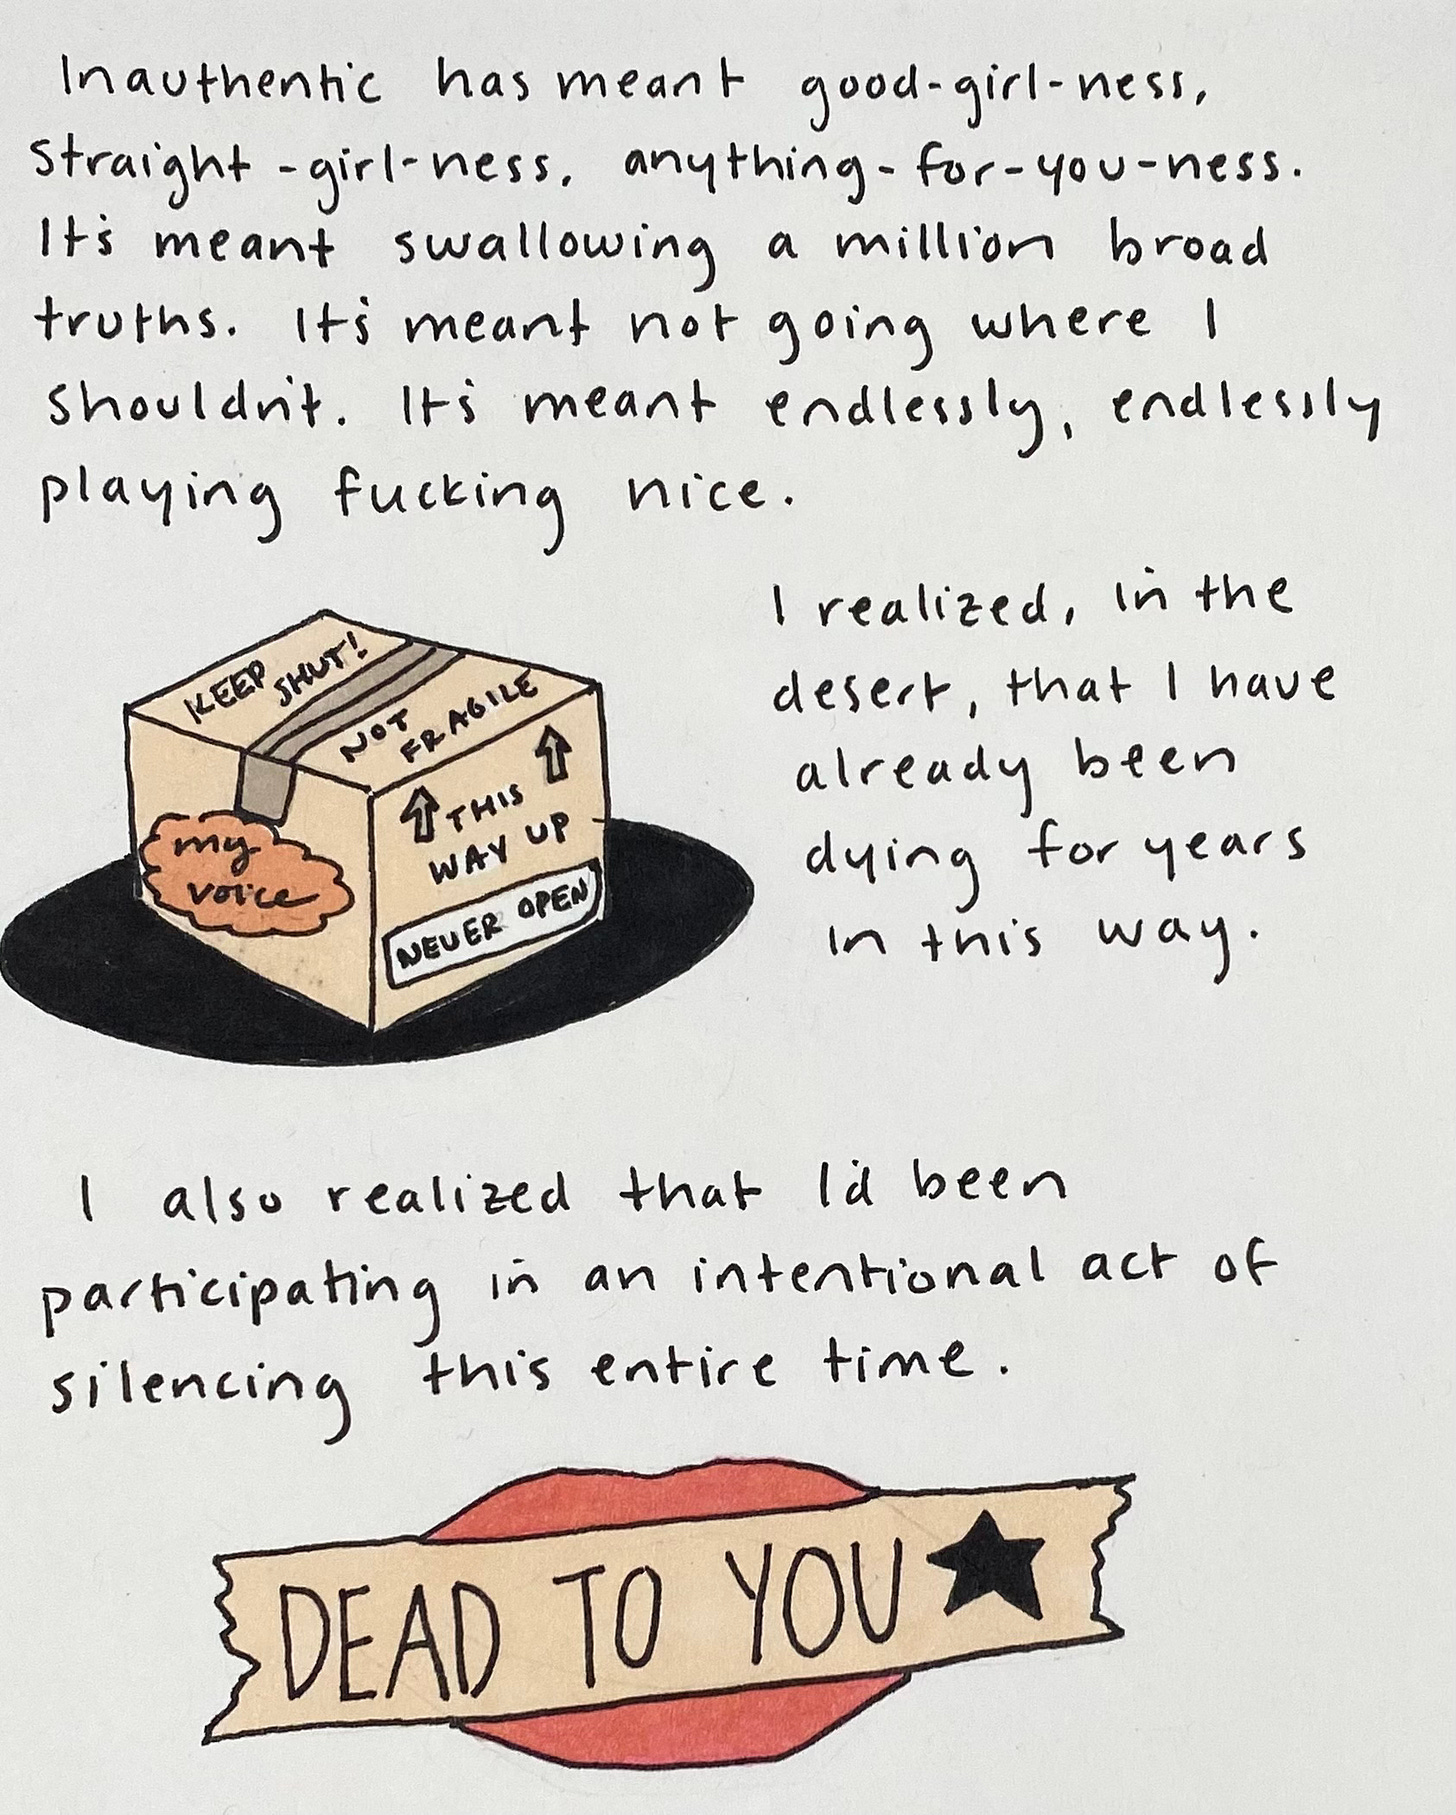 Inauthentic has meant good-girl-ness,
straight-girl-ness, anything-for-you-ness.
It's meant swallowing a million broad
truths. It's meant not going where I
shouldn't. It's meant endlessly, endlessly
playing fucking nice.
KEEP
SHUT!
NOT
FRAGILE
THIS
WAY UP
my
voice
NEVER OPEN
I realized, in the
desert, that I have
already been
dying for years
in this way.
I also realized that I'd been
participating in an intentional act of
silencing this entire time.
DEAD TO YOU